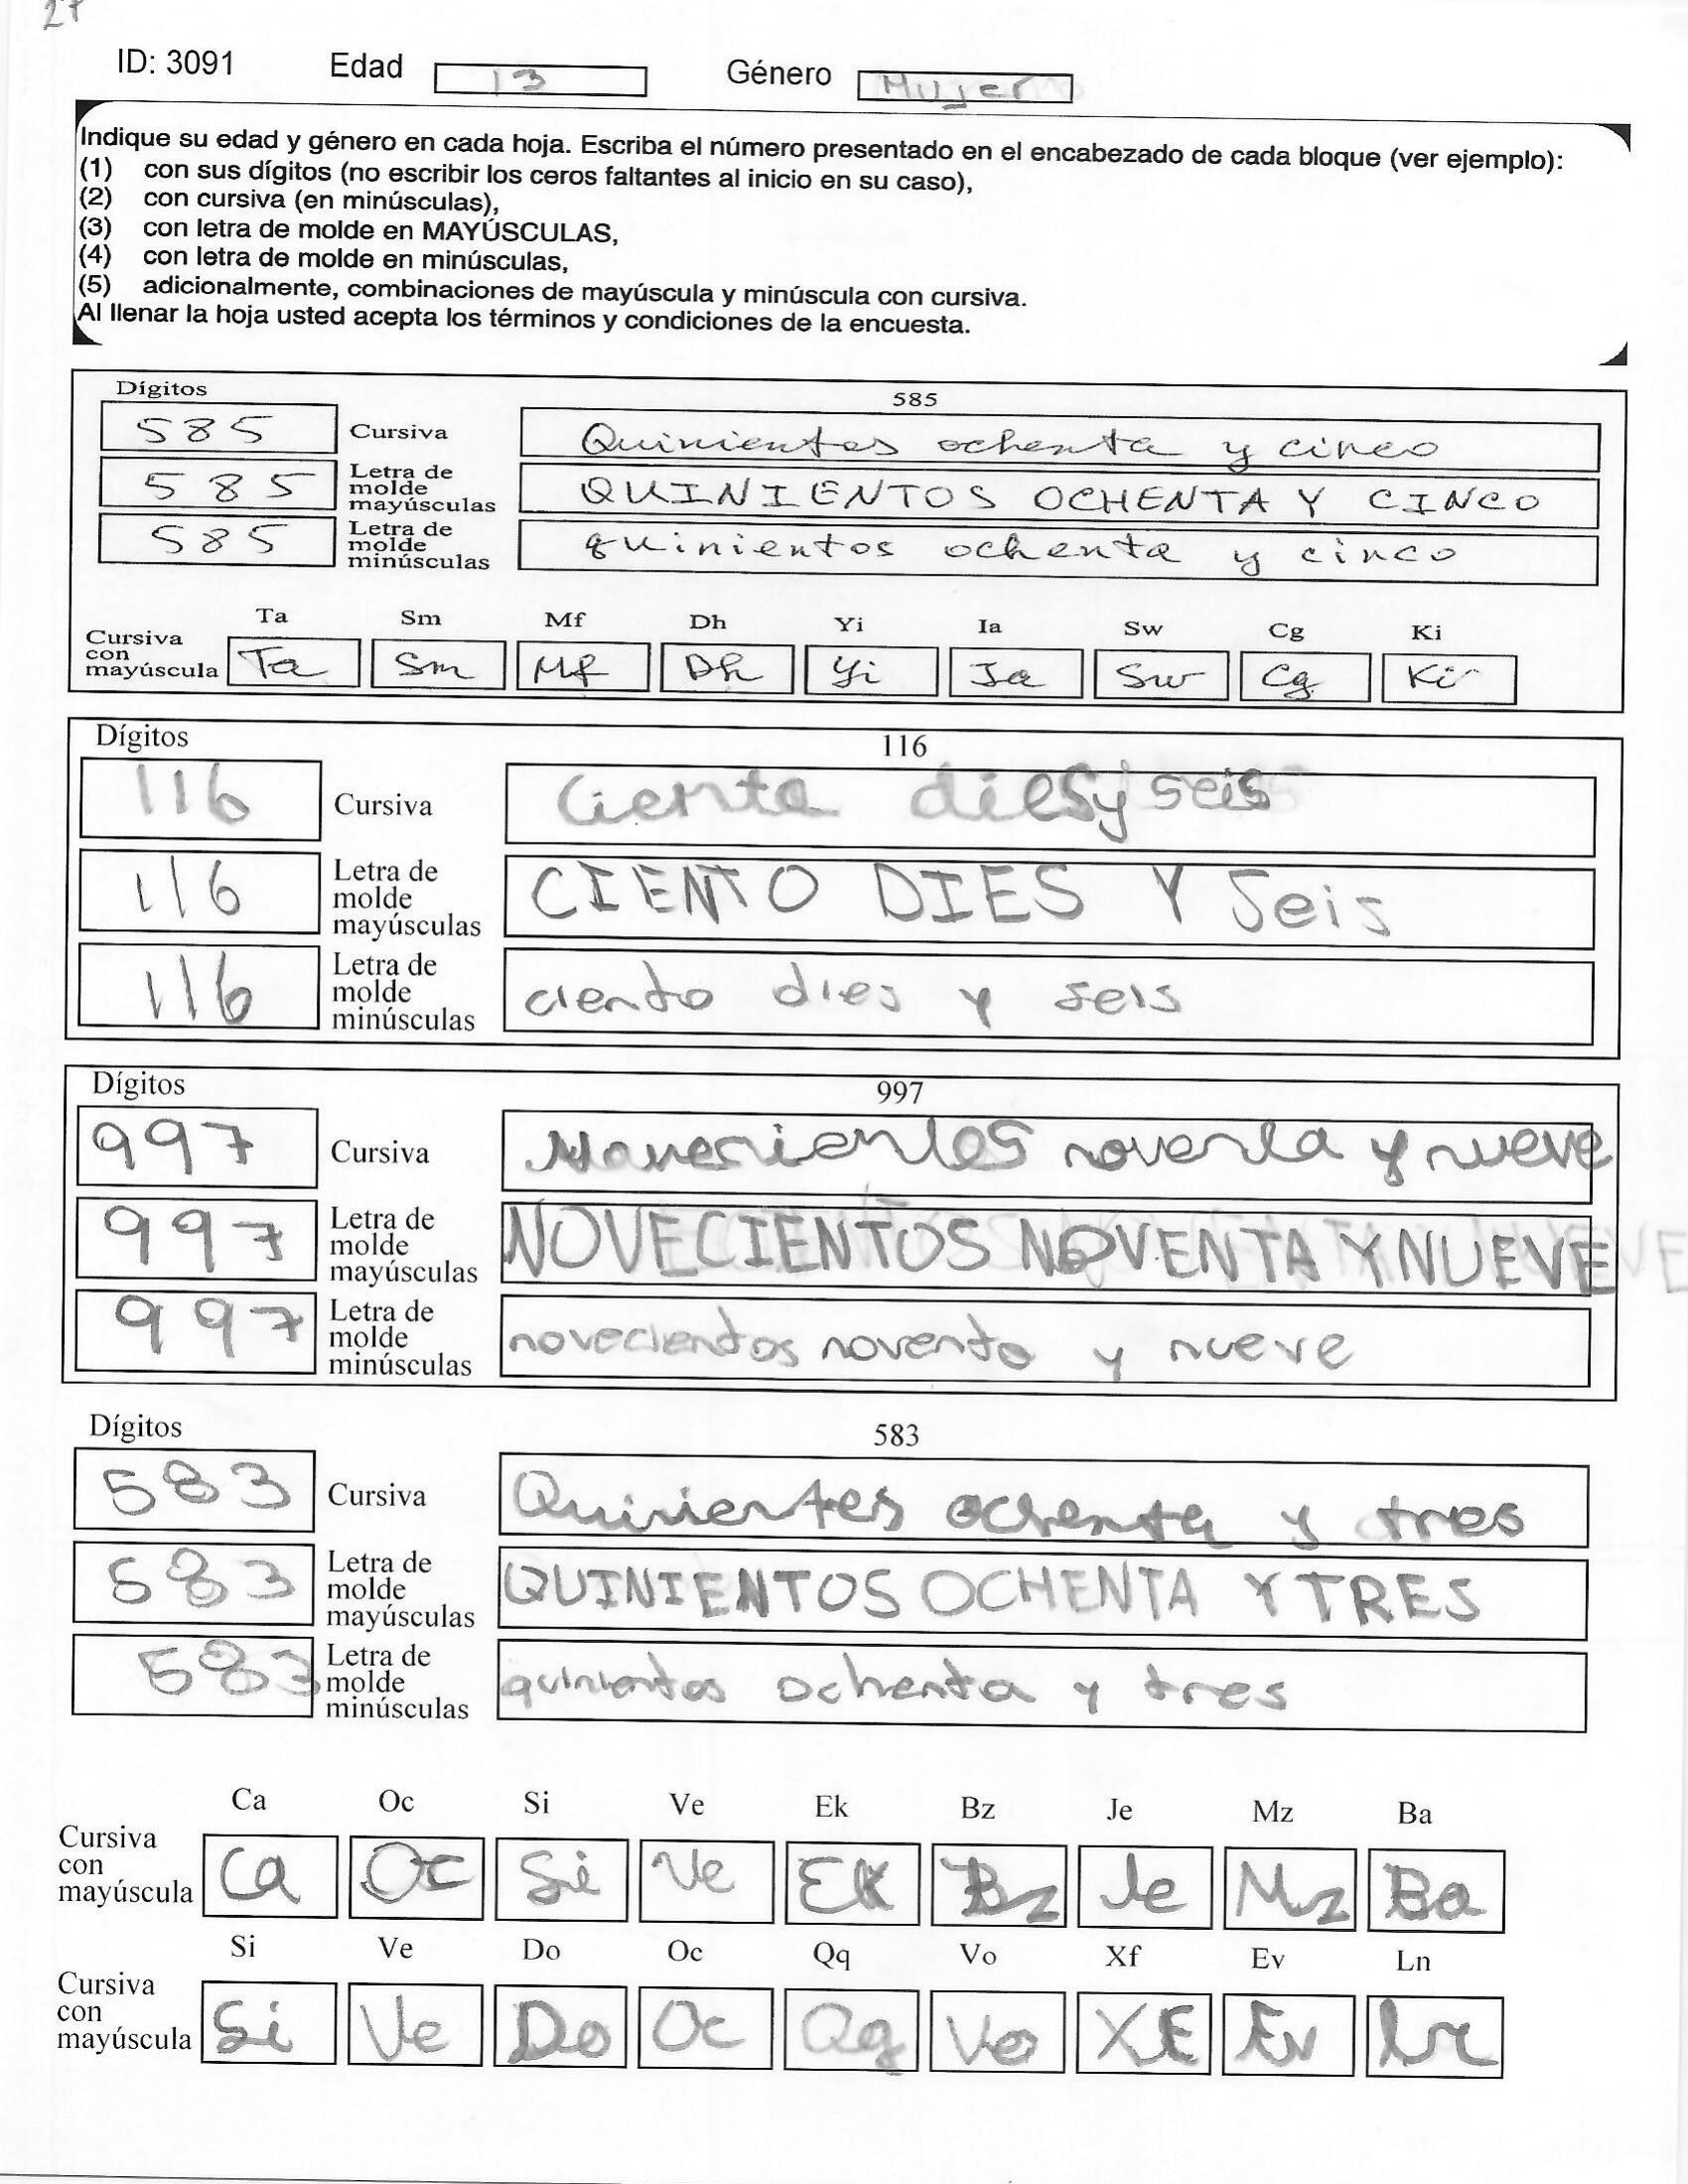 27
ID: 3091 Edad 13 Género Mujer
Indique su edad y género en cada hoja. Escriba el número presentado en el encabezado de cada bloque (ver ejemplo):
(1) con sus dígitos (no escribir los ceros faltantes al inicio en su caso),
(2) con cursiva (en minúsculas),
(3) con letra de molde en MAYÚSCULAS,
(4) con letra de molde en minúsculas,
(5) adicionalmente, combinaciones de mayúscula y minúscula con cursiva.
Al llenar la hoja usted acepta los términos y condiciones de la encuesta.
Dígitos 585
585 Cursiva Quinientos ochenta y cinco
585 Letra de molde mayúsculas QUINIENTOS OCHENTA Y CINCO
585 Letra de molde minúsculas quinientos ochenta y cinco
Ta Sm Mf Dh Yi Ia Sw Cg Ki
Cursiva con mayúscula Ta Sm Mf Dh Yi Ia Sw Cg Ki
Dígitos 116
116 Cursiva Ciento dies y seis
116 Letra de molde mayúsculas CIENTO DIES Y Seis
116 Letra de molde minúsculas ciento dies y seis
Dígitos 997
997 Cursiva Novecientos noventa y nueve
997 Letra de molde mayúsculas NOVECIENTOS NOVENTA Y NUEVE
997 Letra de molde minúsculas novecientos noventa y nueve
Dígitos 583
583 Cursiva Quinientos ochenta y tres
583 Letra de molde mayúsculas QUINIENTOS OCHENTA Y TRES
583 Letra de molde minúsculas quinientos ochenta y tres
Ca Oc Si Ve Ek Bz Je Mz Ba
Cursiva con mayúscula Ca Oc Si Ve Ek Bz Je Mz Ba
Si Ve Do Oc Qq Vo Xf Ev Ln
Cursiva con mayúscula Si Ve Do Oc Qq Vo XE Ev Ln